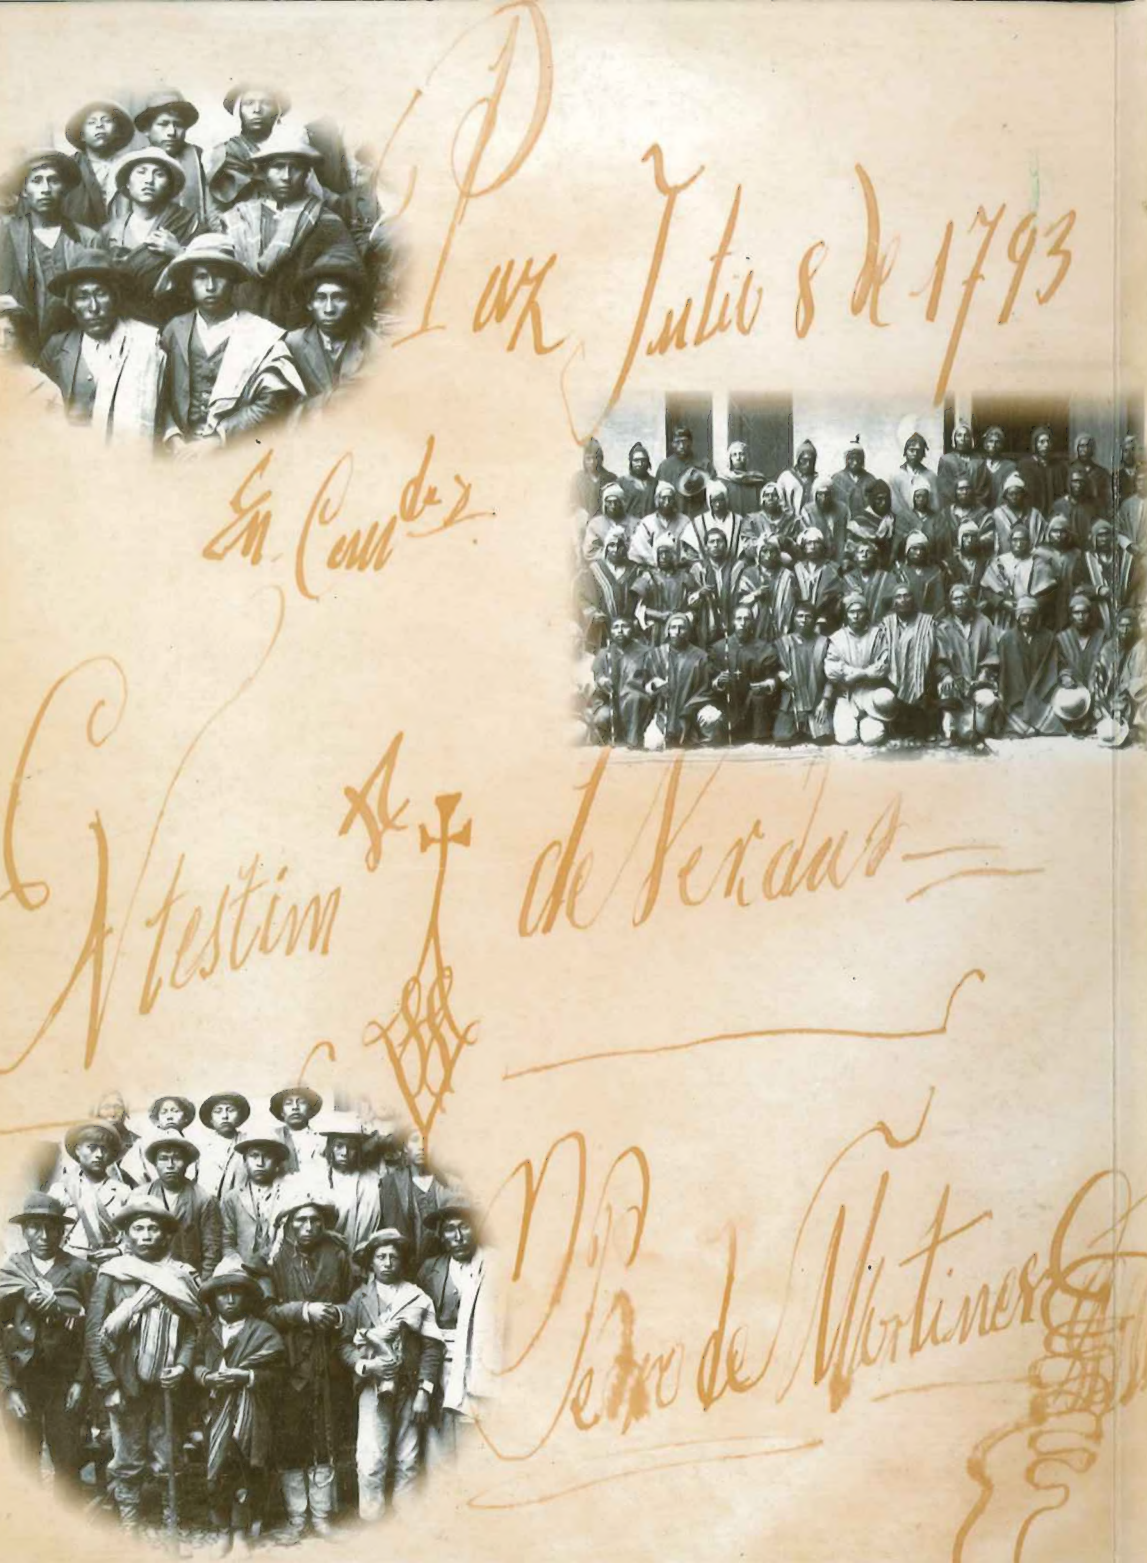 Paz Julio 8 de 1793
En
testim de Verdad
Pedro de Mortines